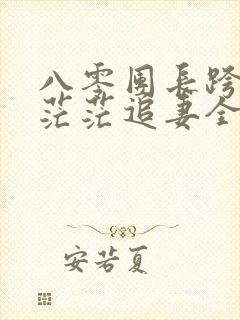 八零团长跨
茫茫追妻全
安若夏